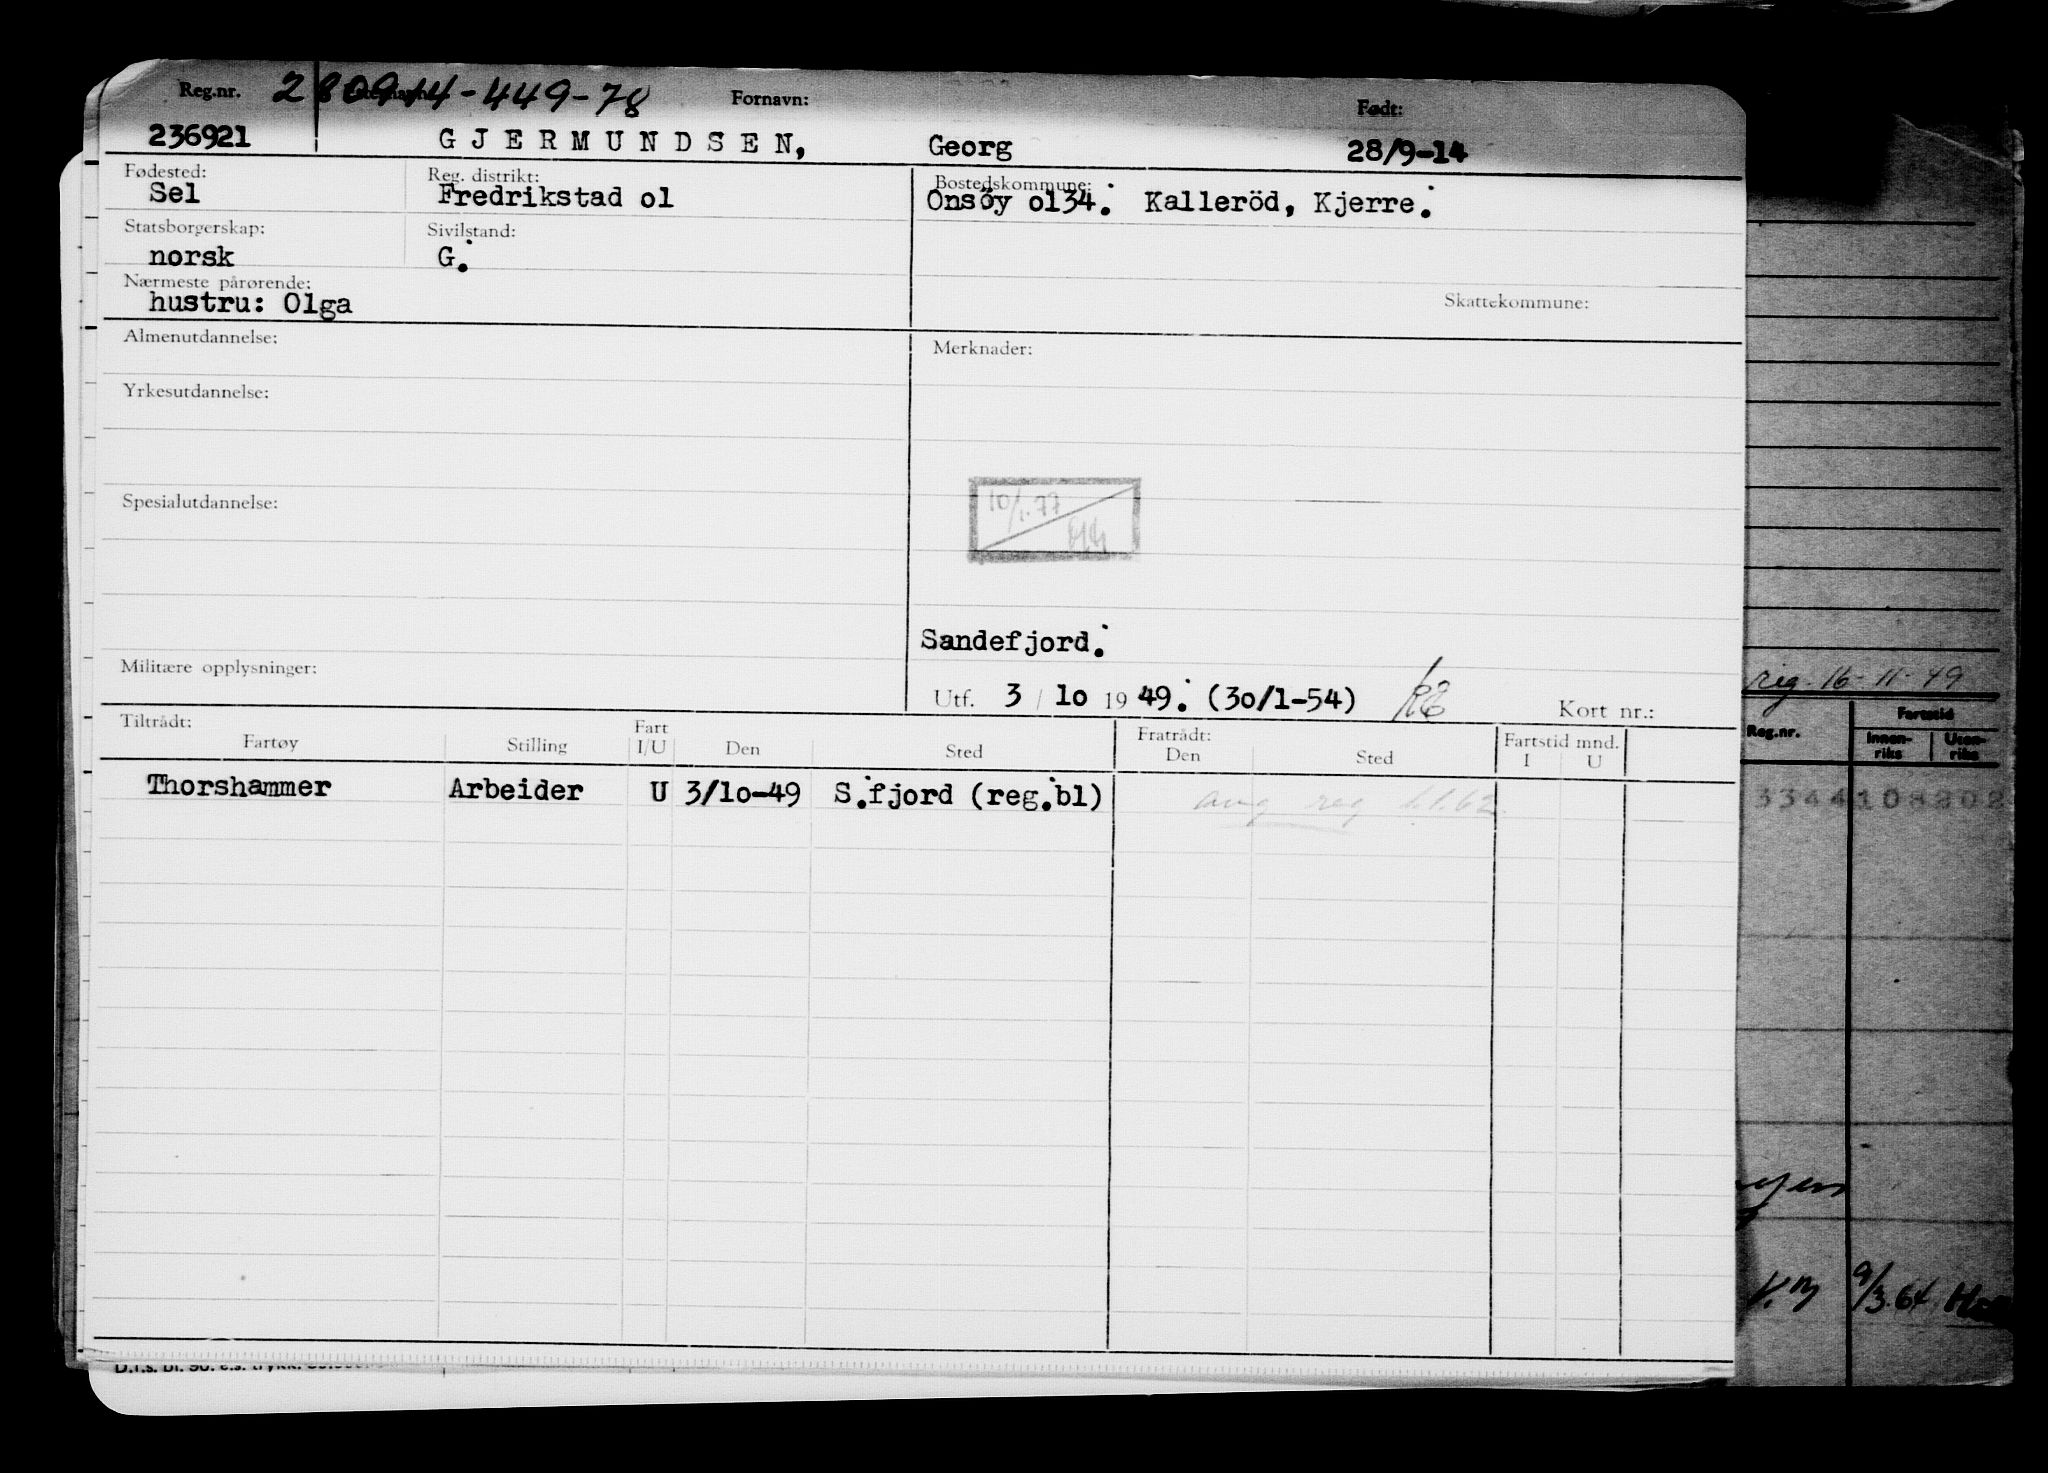 Reg.nr. 280914-449-78 Fornavn: Født:
236921 GJERMUNDSEN, Georg 28/9-14
Fødested: Reg. distrikt: Bostedskommune:
Sel Fredrikstad o1 Onsöy o134. Kalleröd, Kjerre.
Statsborgerskap: Sivilstand:
norsk G.
Nærmeste pårørende: Skattekommune:
hustru: Olga
Almenutdannelse: Merknader:
Yrkesutdannelse:
10/1.77
Spesialutdannelse:
Sandefjord.
Militære opplysninger:
Utf. 3 / 1o 19 49. (3o/1-54) Kort nr.:
Tiltrådt: Fratrådt:
Fartøy Stilling Fart I/U Den Sted Den Sted Fartstid mnd. I U
Thorshammer Arbeider U 3/1o-49 S.fjord (reg.bl) avg reg 1.1.62
reg. 16-11-49
Reg.nr. Fartstid
Innen-riks Uten-riks
3344108202
9/3.64